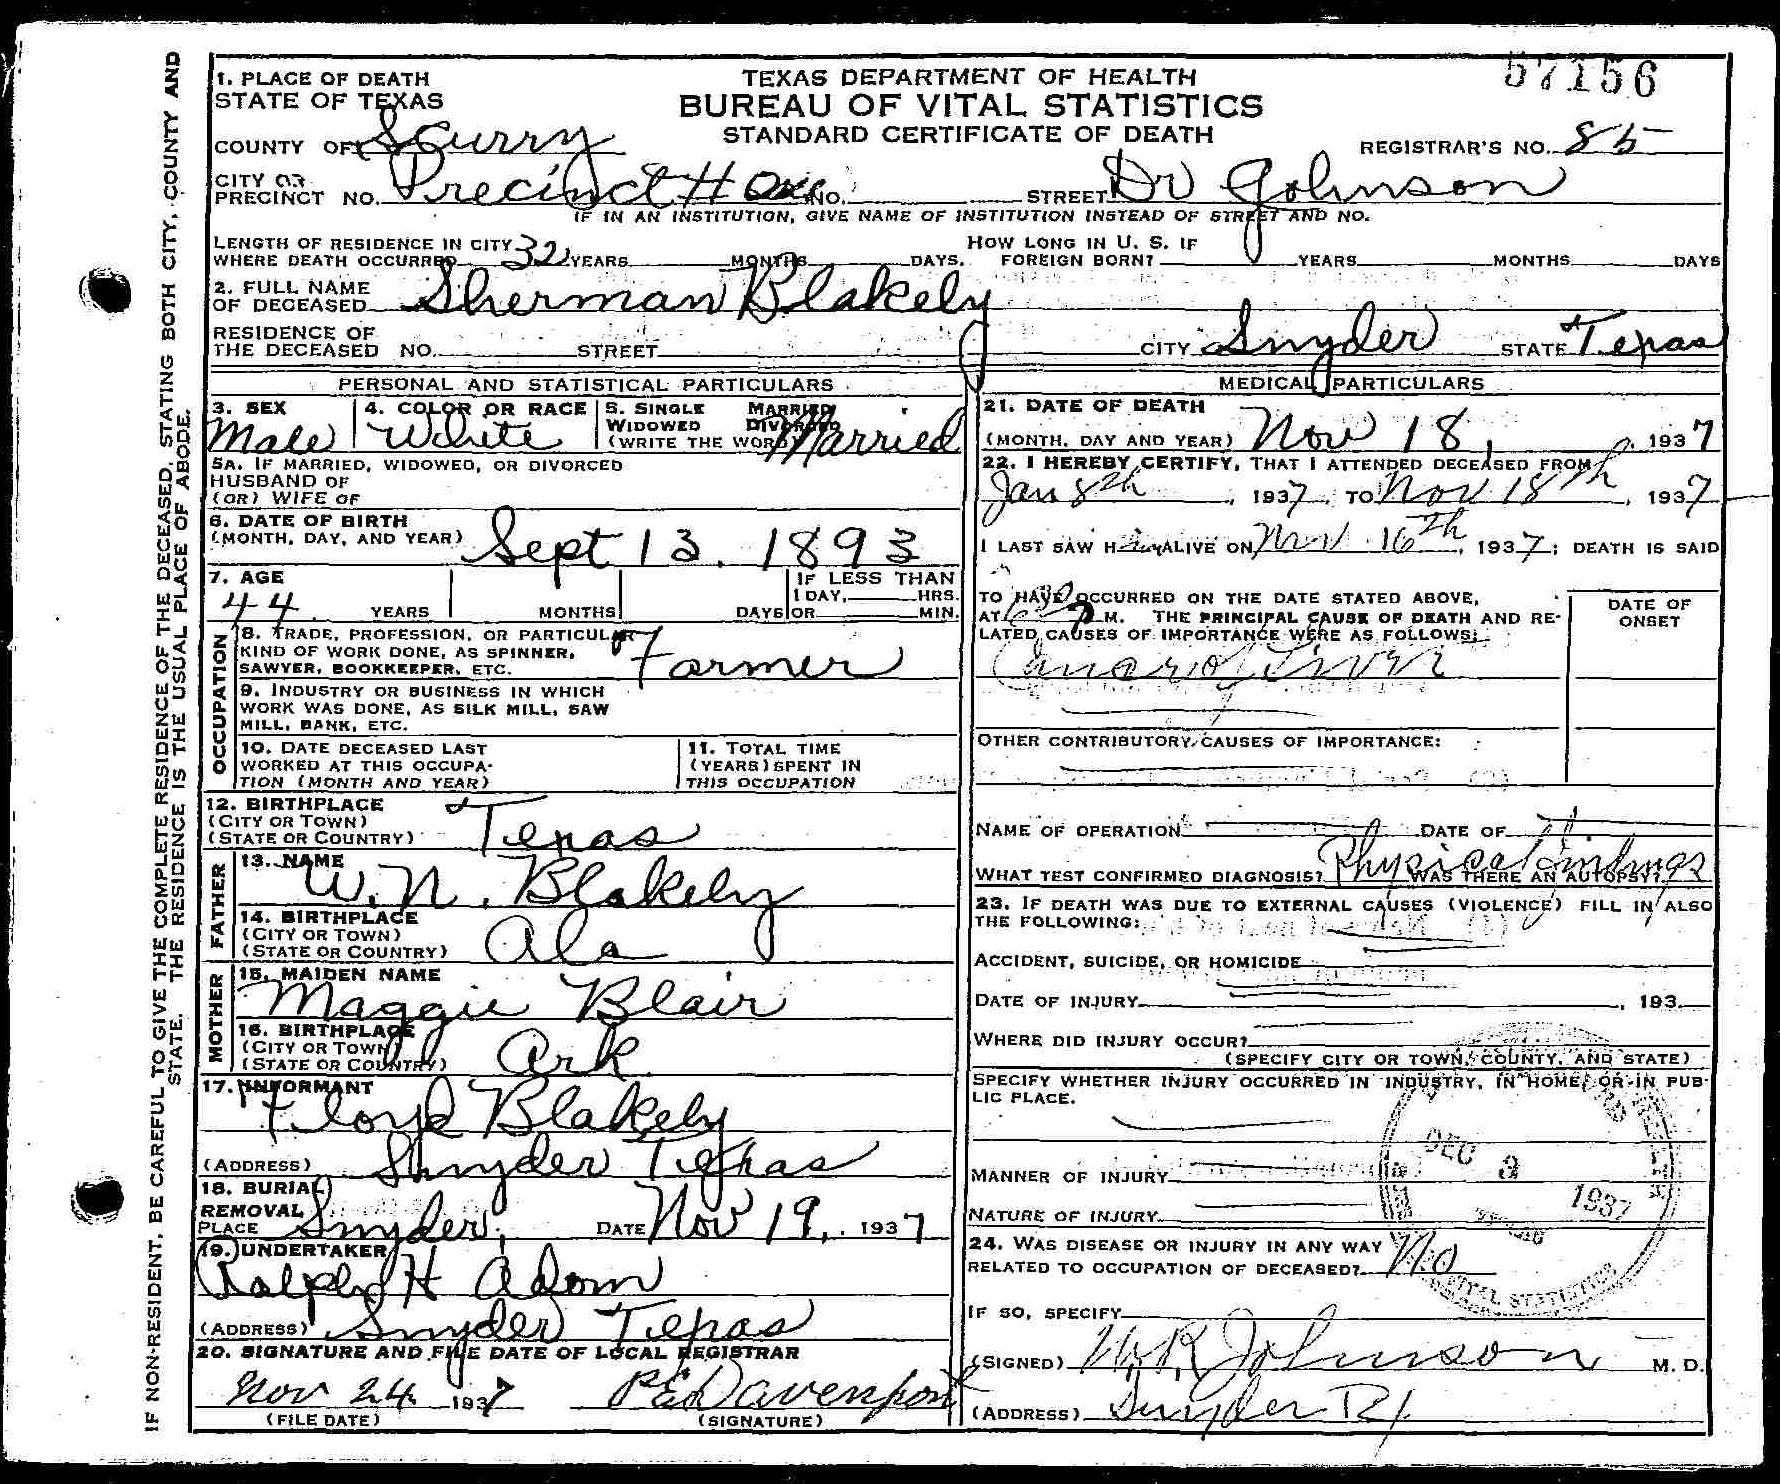 57156
1. PLACE OF DEATH
STATE OF TEXAS
TEXAS DEPARTMENT OF HEALTH
BUREAU OF VITAL STATISTICS
STANDARD CERTIFICATE OF DEATH
COUNTY OF Scurry
REGISTRAR'S NO. 85
CITY OR
PRECINCT NO. Precinct # One NO. STREET Dr Johnson
IF IN AN INSTITUTION, GIVE NAME OF INSTITUTION INSTEAD OF STREET AND NO.
LENGTH OF RESIDENCE IN CITY
WHERE DEATH OCCURRED 32 YEARS MONTHS DAYS.
HOW LONG IN U. S. IF
FOREIGN BORN? YEARS MONTHS DAYS
2. FULL NAME
OF DECEASED Sherman Blakely
RESIDENCE OF
THE DECEASED NO. STREET CITY Snyder STATE Texas
PERSONAL AND STATISTICAL PARTICULARS
3. SEX
Male
4. COLOR OR RACE
White
5. SINGLE MARRIED
WIDOWED DIVORCED
(WRITE THE WORD) Married
5A. IF MARRIED, WIDOWED, OR DIVORCED
HUSBAND OF
(OR) WIFE OF
6. DATE OF BIRTH
(MONTH, DAY, AND YEAR) Sept 13. 1893
7. AGE
44 YEARS MONTHS DAYS
IF LESS THAN
1 DAY, HRS.
OR MIN.
OCCUPATION
8. TRADE, PROFESSION, OR PARTICULAR
KIND OF WORK DONE, AS SPINNER,
SAWYER, BOOKKEEPER, ETC. Farmer
9. INDUSTRY OR BUSINESS IN WHICH
WORK WAS DONE, AS SILK MILL, SAW
MILL, BANK, ETC.
10. DATE DECEASED LAST
WORKED AT THIS OCCUPA-
TION (MONTH AND YEAR)
11. TOTAL TIME
(YEARS) SPENT IN
THIS OCCUPATION
12. BIRTHPLACE
(CITY OR TOWN)
(STATE OR COUNTRY) Texas
FATHER
13. NAME
W. N. Blakely
14. BIRTHPLACE
(CITY OR TOWN)
(STATE OR COUNTRY) Ala
MOTHER
15. MAIDEN NAME
Maggie Blair
16. BIRTHPLACE
(CITY OR TOWN)
(STATE OR COUNTRY) Ark
17. INFORMANT
Floyd Blakely
(ADDRESS) Snyder Texas
18. BURIAL
REMOVAL
PLACE Snyder, DATE Nov 19, 1937
19. UNDERTAKER
Ralph H Adom
(ADDRESS) Snyder Texas
20. SIGNATURE AND FILE DATE OF LOCAL REGISTRAR
Nov 24 1937 Davenport
(FILE DATE) (SIGNATURE)
MEDICAL PARTICULARS
21. DATE OF DEATH
(MONTH, DAY AND YEAR) Nov 18, 1937
22. I HEREBY CERTIFY, THAT I ATTENDED DECEASED FROM
Jan 8th, 1937 TO Nov 18th, 1937
I LAST SAW H im ALIVE ON Nov 16th, 1937; DEATH IS SAID
TO HAVE OCCURRED ON THE DATE STATED ABOVE,
AT M. THE PRINCIPAL CAUSE OF DEATH AND RE-
LATED CAUSES OF IMPORTANCE WERE AS FOLLOWS:
DATE OF
ONSET
Cancer of Liver
OTHER CONTRIBUTORY CAUSES OF IMPORTANCE:
NAME OF OPERATION DATE OF
WHAT TEST CONFIRMED DIAGNOSIS? Physical Findings WAS THERE AN AUTOPSY?
23. IF DEATH WAS DUE TO EXTERNAL CAUSES (VIOLENCE) FILL IN ALSO
THE FOLLOWING:
ACCIDENT, SUICIDE, OR HOMICIDE
DATE OF INJURY , 193
WHERE DID INJURY OCCUR?
(SPECIFY CITY OR TOWN, COUNTY, AND STATE)
SPECIFY WHETHER INJURY OCCURRED IN INDUSTRY, IN HOME, OR IN PUB-
LIC PLACE.
MANNER OF INJURY
NATURE OF INJURY
24. WAS DISEASE OR INJURY IN ANY WAY
RELATED TO OCCUPATION OF DECEASED? No
IF SO, SPECIFY
(SIGNED) Johnson M. D.
(ADDRESS) Snyder
DEC 3 1937
VITAL STATISTICS
IF NON-RESIDENT, BE CAREFUL TO GIVE THE COMPLETE RESIDENCE OF THE DECEASED, STATING BOTH CITY, COUNTY AND
STATE. THE RESIDENCE IS THE USUAL PLACE OF ABODE.